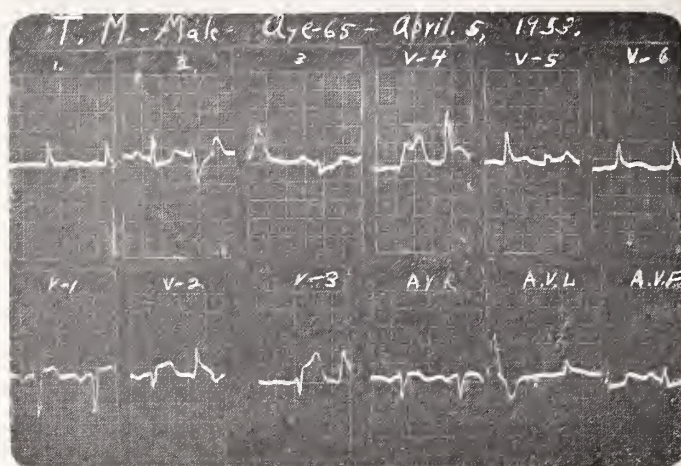 T. M - Male - Age - 65 - April. 5, 1953.
1. 2. 3 V-4 V-5 V-6
V-1 V-2 V-3 A.V.R A.V.L A.V.F